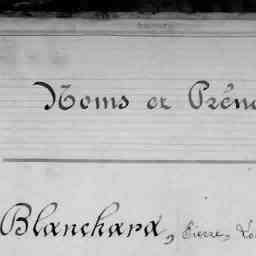 Noms et Préno
Blanchard, Pierre, Lo